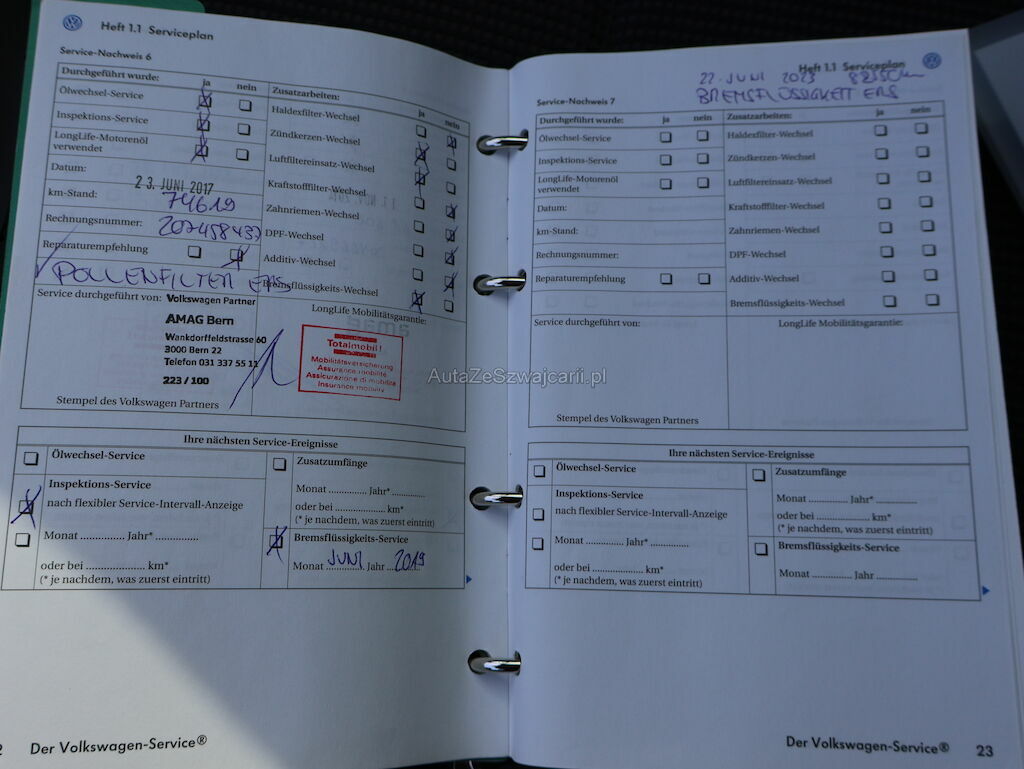 Heft 1.1 Serviceplan
Service-Nachweis 6
Durchgeführt wurde: ja nein
Ölwechsel-Service
Inspektions-Service
LongLife-Motorenöl
verwendet
Datum: 23. JUNI 2017
km-Stand: 74619
Rechnungsnummer: 207458437
Reparaturempfehlung
POLLENFILTER ERS
Zusatzarbeiten: ja nein
Haldexfilter-Wechsel
Zündkerzen-Wechsel
Luftfiltereinsatz-Wechsel
Kraftstofffilter-Wechsel
Zahnriemen-Wechsel
DPF-Wechsel
Additiv-Wechsel
Bremsflüssigkeits-Wechsel
Service durchgeführt von: Volkswagen Partner
AMAG Bern
Wankdorffeldstrasse 60
3000 Bern 22
Telefon 031 337 55 11
223 / 100
Stempel des Volkswagen Partners
LongLife Mobilitätsgarantie:
Totalmobil!
Mobilitätsversicherung
Assurance mobilité
Assicurazione di mobilità
Insurance mobility
Ihre nächsten Service-Ereignisse
Ölwechsel-Service
Inspektions-Service
nach flexibler Service-Intervall-Anzeige
Monat .............. Jahr* ..............
oder bei .................... km*
(* je nachdem, was zuerst eintritt)
Zusatzumfänge
Monat .............. Jahr* ............
oder bei .................... km*
(* je nachdem, was zuerst eintritt)
Bremsflüssigkeits-Service
Monat JUNI Jahr 2019
Der Volkswagen-Service®
Heft 1.1 Serviceplan
22. JUNI 2023
BREMSFLÜSSIGKEIT ERS
Service-Nachweis 7
Durchgeführt wurde: ja nein
Ölwechsel-Service
Inspektions-Service
LongLife-Motorenöl
verwendet
Datum:
km-Stand:
Rechnungsnummer:
Reparaturempfehlung
Zusatzarbeiten: ja nein
Haldexfilter-Wechsel
Zündkerzen-Wechsel
Luftfiltereinsatz-Wechsel
Kraftstofffilter-Wechsel
Zahnriemen-Wechsel
DPF-Wechsel
Additiv-Wechsel
Bremsflüssigkeits-Wechsel
Service durchgeführt von:
Stempel des Volkswagen Partners
LongLife Mobilitätsgarantie:
Ihre nächsten Service-Ereignisse
Ölwechsel-Service
Inspektions-Service
nach flexibler Service-Intervall-Anzeige
Monat .............. Jahr* ..............
oder bei .................... km*
(* je nachdem, was zuerst eintritt)
Zusatzumfänge
Monat .............. Jahr* ............
oder bei .................... km*
(* je nachdem, was zuerst eintritt)
Bremsflüssigkeits-Service
Monat .............. Jahr ..............
Der Volkswagen-Service® 23
AutaZeSzwajcarii.pl